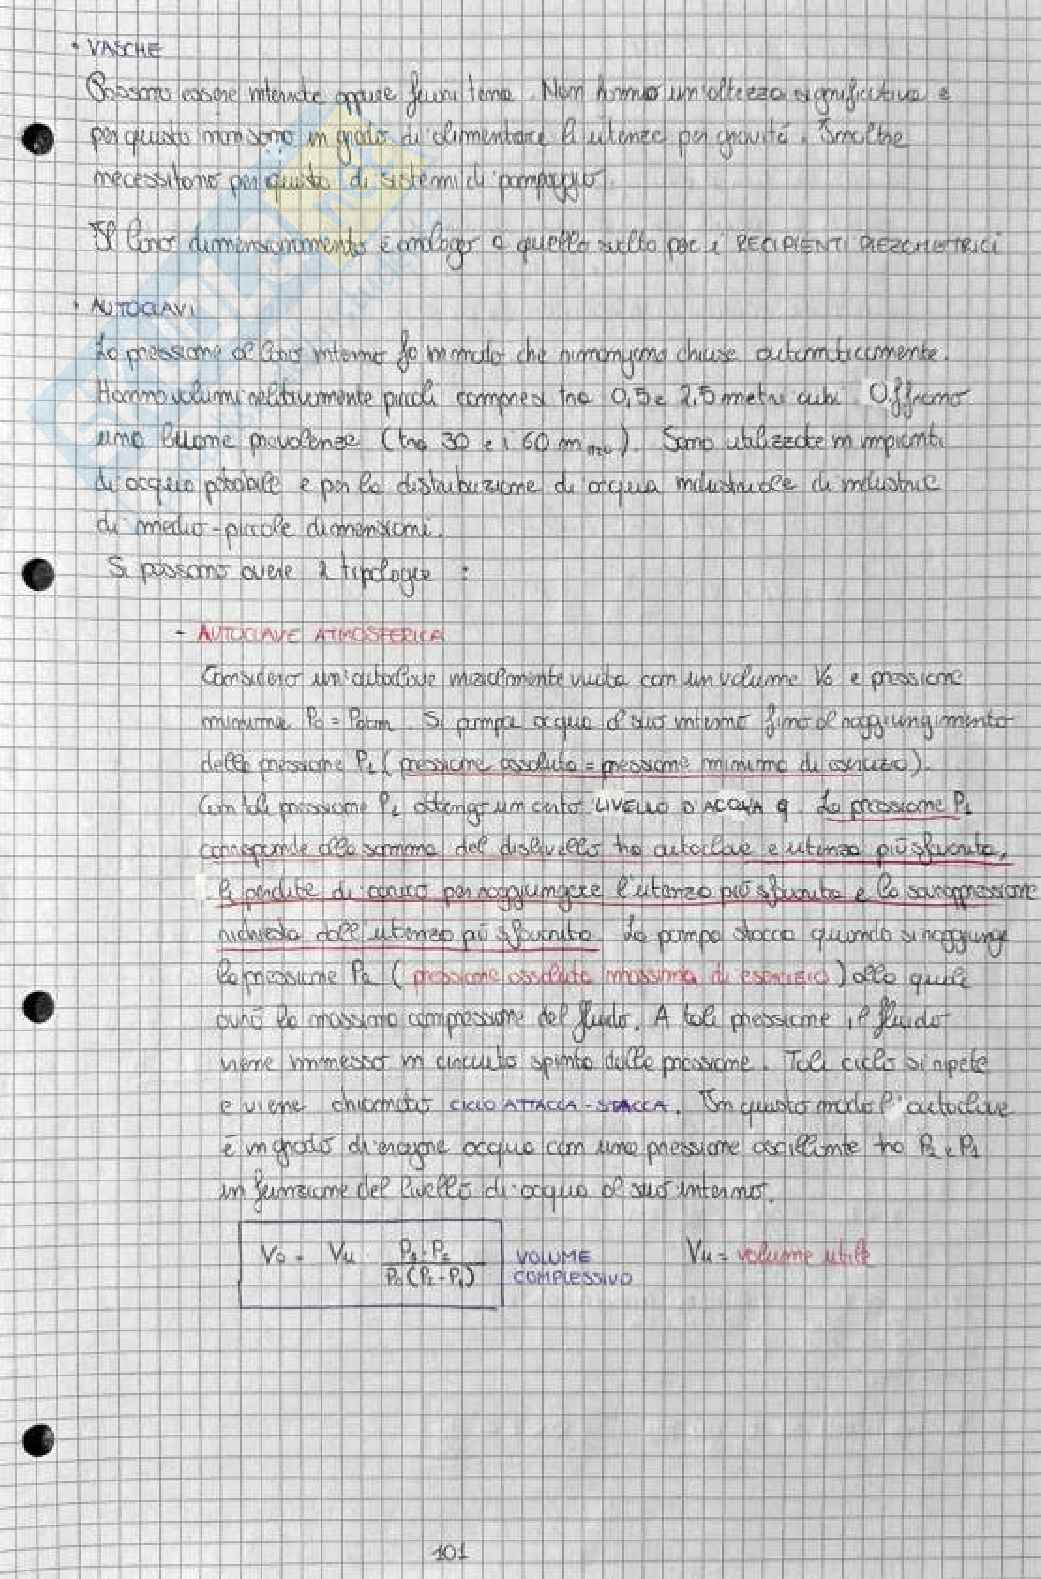 • VASCHE
Possono essere interrate oppure fuori terra. Non hanno un'altezza significativa e
per questo non sono in grado di alimentare le utenze per gravità. Inoltre
necessitano per questo di sistemi di pompaggio.
Il loro dimensionamento è analogo a quello svolto per i RECIPIENTI PIEZOMETRICI
• AUTOCLAVI
La pressione al loro interno fa in modo che rimangano chiuse automaticamente.
Hanno volumi relativamente piccoli compresi tra 0,5 e 2,5 metri cubi. Offrono
una buona prevalenza (tra 30 e i 60 m H2O). Sono utilizzate in impianti
di acqua potabile e per la distribuzione di acqua industriale di industrie
di medio-piccole dimensioni.
Si possono avere 2 tipologie :
- AUTOCLAVE ATMOSFERICA
Considero un'autoclave inizialmente vuota con un volume V0 e pressione
minima P0 = Patm. Si pompa acqua al suo interno fino al raggiungimento
della pressione P1 (pressione assoluta = pressione minima di esercizio).
Con tale pressione P1 ottengo un certo LIVELLO D'ACQUA q. La pressione P1
corrisponde alla somma del dislivello tra autoclave e utenza più sfavorita,
le perdite di carico per raggiungere l'utenza più sfavorita e la sovrappressione
richiesta dall'utenza più sfavorita. La pompa stacca quando si raggiunge
la pressione P2 (pressione assoluta massima di esercizio) alla quale
avrò la massima compressione del fluido. A tale pressione, il fluido
viene immesso in circuito spinto dalla pressione. Tale ciclo si ripete
e viene chiamato CICLO ATTACCA-STACCA. In questo modo l'autoclave
è in grado di erogare acqua con una pressione oscillante tra P2 e P1
in funzione del livello di acqua al suo interno.
V0 = Vu · P1·P2 / P0(P2-P1) VOLUME COMPLESSIVO Vu = volume utile
101